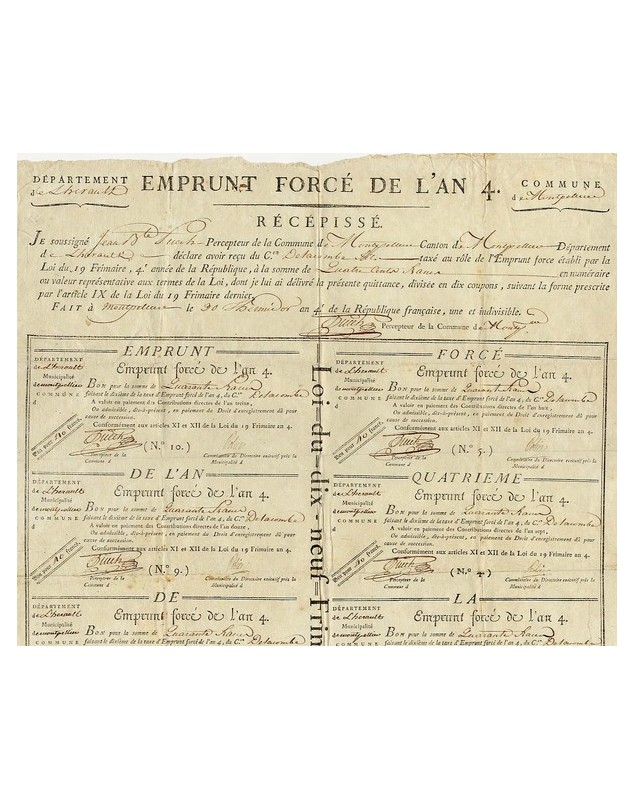 DÉPARTEMENT
de L'herault
EMPRUNT FORCÉ DE L'AN 4.
COMMUNE
de Montpellier
RÉCÉPISSÉ.
JE soussigné Jean Bte Puech Percepteur de la Commune de Montpellier Canton de Montpellier Département
de L'herault déclare avoir reçu du C.en Delacombe taxé au rôle de l'Emprunt forcé établi par la
Loi du 19 Frimaire, 4.e année de la République, à la somme de Quatre Cents francs en numéraire
ou valeur représentative aux termes de la Loi, dont je lui ai délivré la présente quittance, divisée en dix coupons, suivant la forme prescrite
par l'article IX de la Loi du 19 Frimaire dernier.
FAIT à montpellier le 30 an 4.e de la République française, une et indivisible.
Puech Percepteur de la Commune de
Loi du dix-neuf Frim
EMPRUNT
DÉPARTEMENT
de L'herault
Municipalité
de montpellier
COMMUNE
d
Emprunt forcé de l'an 4.
BON pour la somme de Quarante francs
faisant le dixième de la taxe d'Emprunt forcé de l'an 4, du C.en Delacombe
A valoir en payement des Contributions directes de l'an treize,
Ou admissible, dès-à-présent, en payement du Droit d'enregistrement dû pour
cause de succession.
Conformément aux articles XI et XII de la Loi du 19 Frimaire an 4.
Bon pour 40 francs.
Puech
(N.o 10.)
Percepteur de la
Commune d
Commissaire du Directoire exécutif près la
Municipalité d
FORCÉ
DÉPARTEMENT
de L'herault
Municipalité
de montpellier
COMMUNE
d
Emprunt forcé de l'an 4.
BON pour la somme de Quarante francs
faisant le dixième de la taxe d'Emprunt forcé de l'an 4, du C.en Delacombe
A valoir en payement des Contributions directes de l'an huit,
Ou admissible, dès-à-présent, en payement du Droit d'enregistrement dû pour
cause de succession.
Conformément aux articles XI et XII de la Loi du 19 Frimaire an 4.
Bon pour 40 francs.
Puech
(N.o 5.)
Percepteur de la
Commune d
Commissaire du Directoire exécutif près la
Municipalité d
DE L'AN
DÉPARTEMENT
de L'herault
Municipalité
de montpellier
COMMUNE
d
Emprunt forcé de l'an 4.
BON pour la somme de Quarante francs
faisant le dixième de la taxe d'Emprunt forcé de l'an 4, du C.en Delacombe
A valoir en payement des Contributions directes de l'an douze,
Ou admissible, dès-à-présent, en payement du Droit d'enregistrement dû pour
cause de succession.
Conformément aux articles XI et XII de la Loi du 19 Frimaire an 4.
Bon pour 40 francs.
Puech
(N.o 9.)
Percepteur de la
Commune d
Commissaire du Directoire exécutif près la
Municipalité d
QUATRIEME
DÉPARTEMENT
de L'herault
Municipalité
de montpellier
COMMUNE
d
Emprunt forcé de l'an 4.
BON pour la somme de Quarante francs
faisant le dixième de la taxe d'Emprunt forcé de l'an 4, du C.en Delacombe
A valoir en payement des Contributions directes de l'an sept,
Ou admissible, dès-à-présent, en payement du Droit d'enregistrement dû pour
cause de succession.
Conformément aux articles XI et XII de la Loi du 19 Frimaire an 4.
Bon pour 40 francs.
Puech
(N.o 4.)
Percepteur de la
Commune d
Commissaire du Directoire exécutif près la
Municipalité d
DE
DÉPARTEMENT
de L'herault
Municipalité
de montpellier
COMMUNE
Emprunt forcé de l'an 4.
BON pour la somme de Quarante francs
faisant le dixième de la taxe d'Emprunt forcé de l'an 4, du C.en Delacombe
LA
DÉPARTEMENT
de L'herault
Municipalité
de montpellier
COMMUNE
Emprunt forcé de l'an 4.
BON pour la somme de Quarante francs
faisant le dixième de la taxe d'Emprunt forcé de l'an 4, du C.en Delacombe